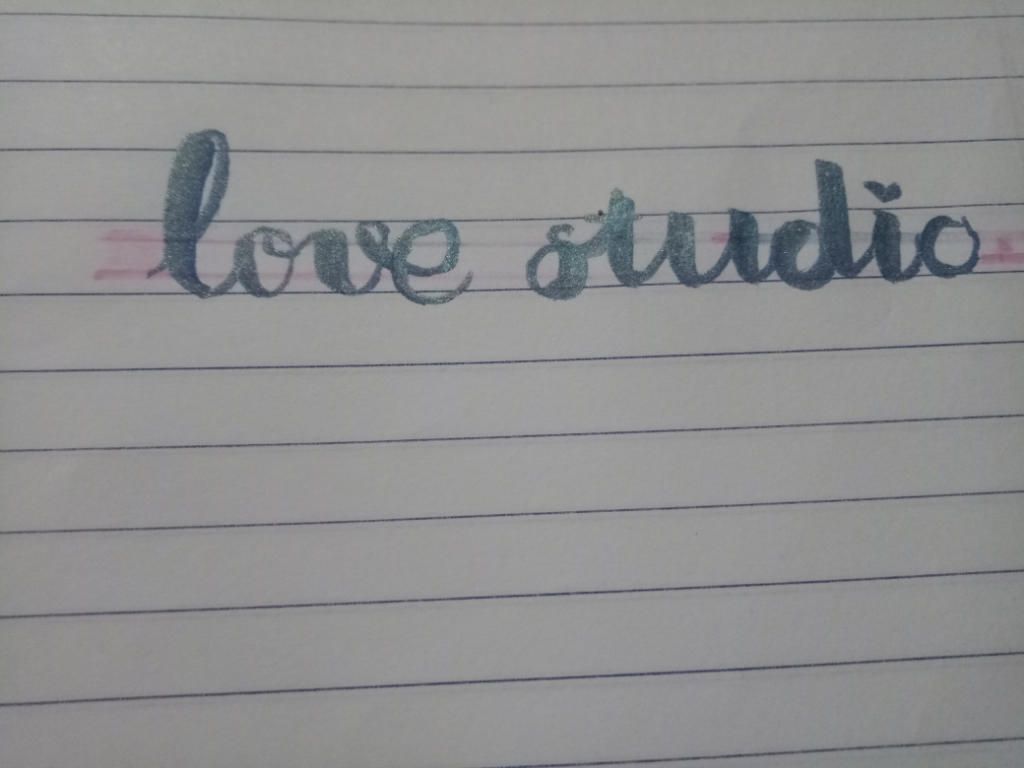 love studio